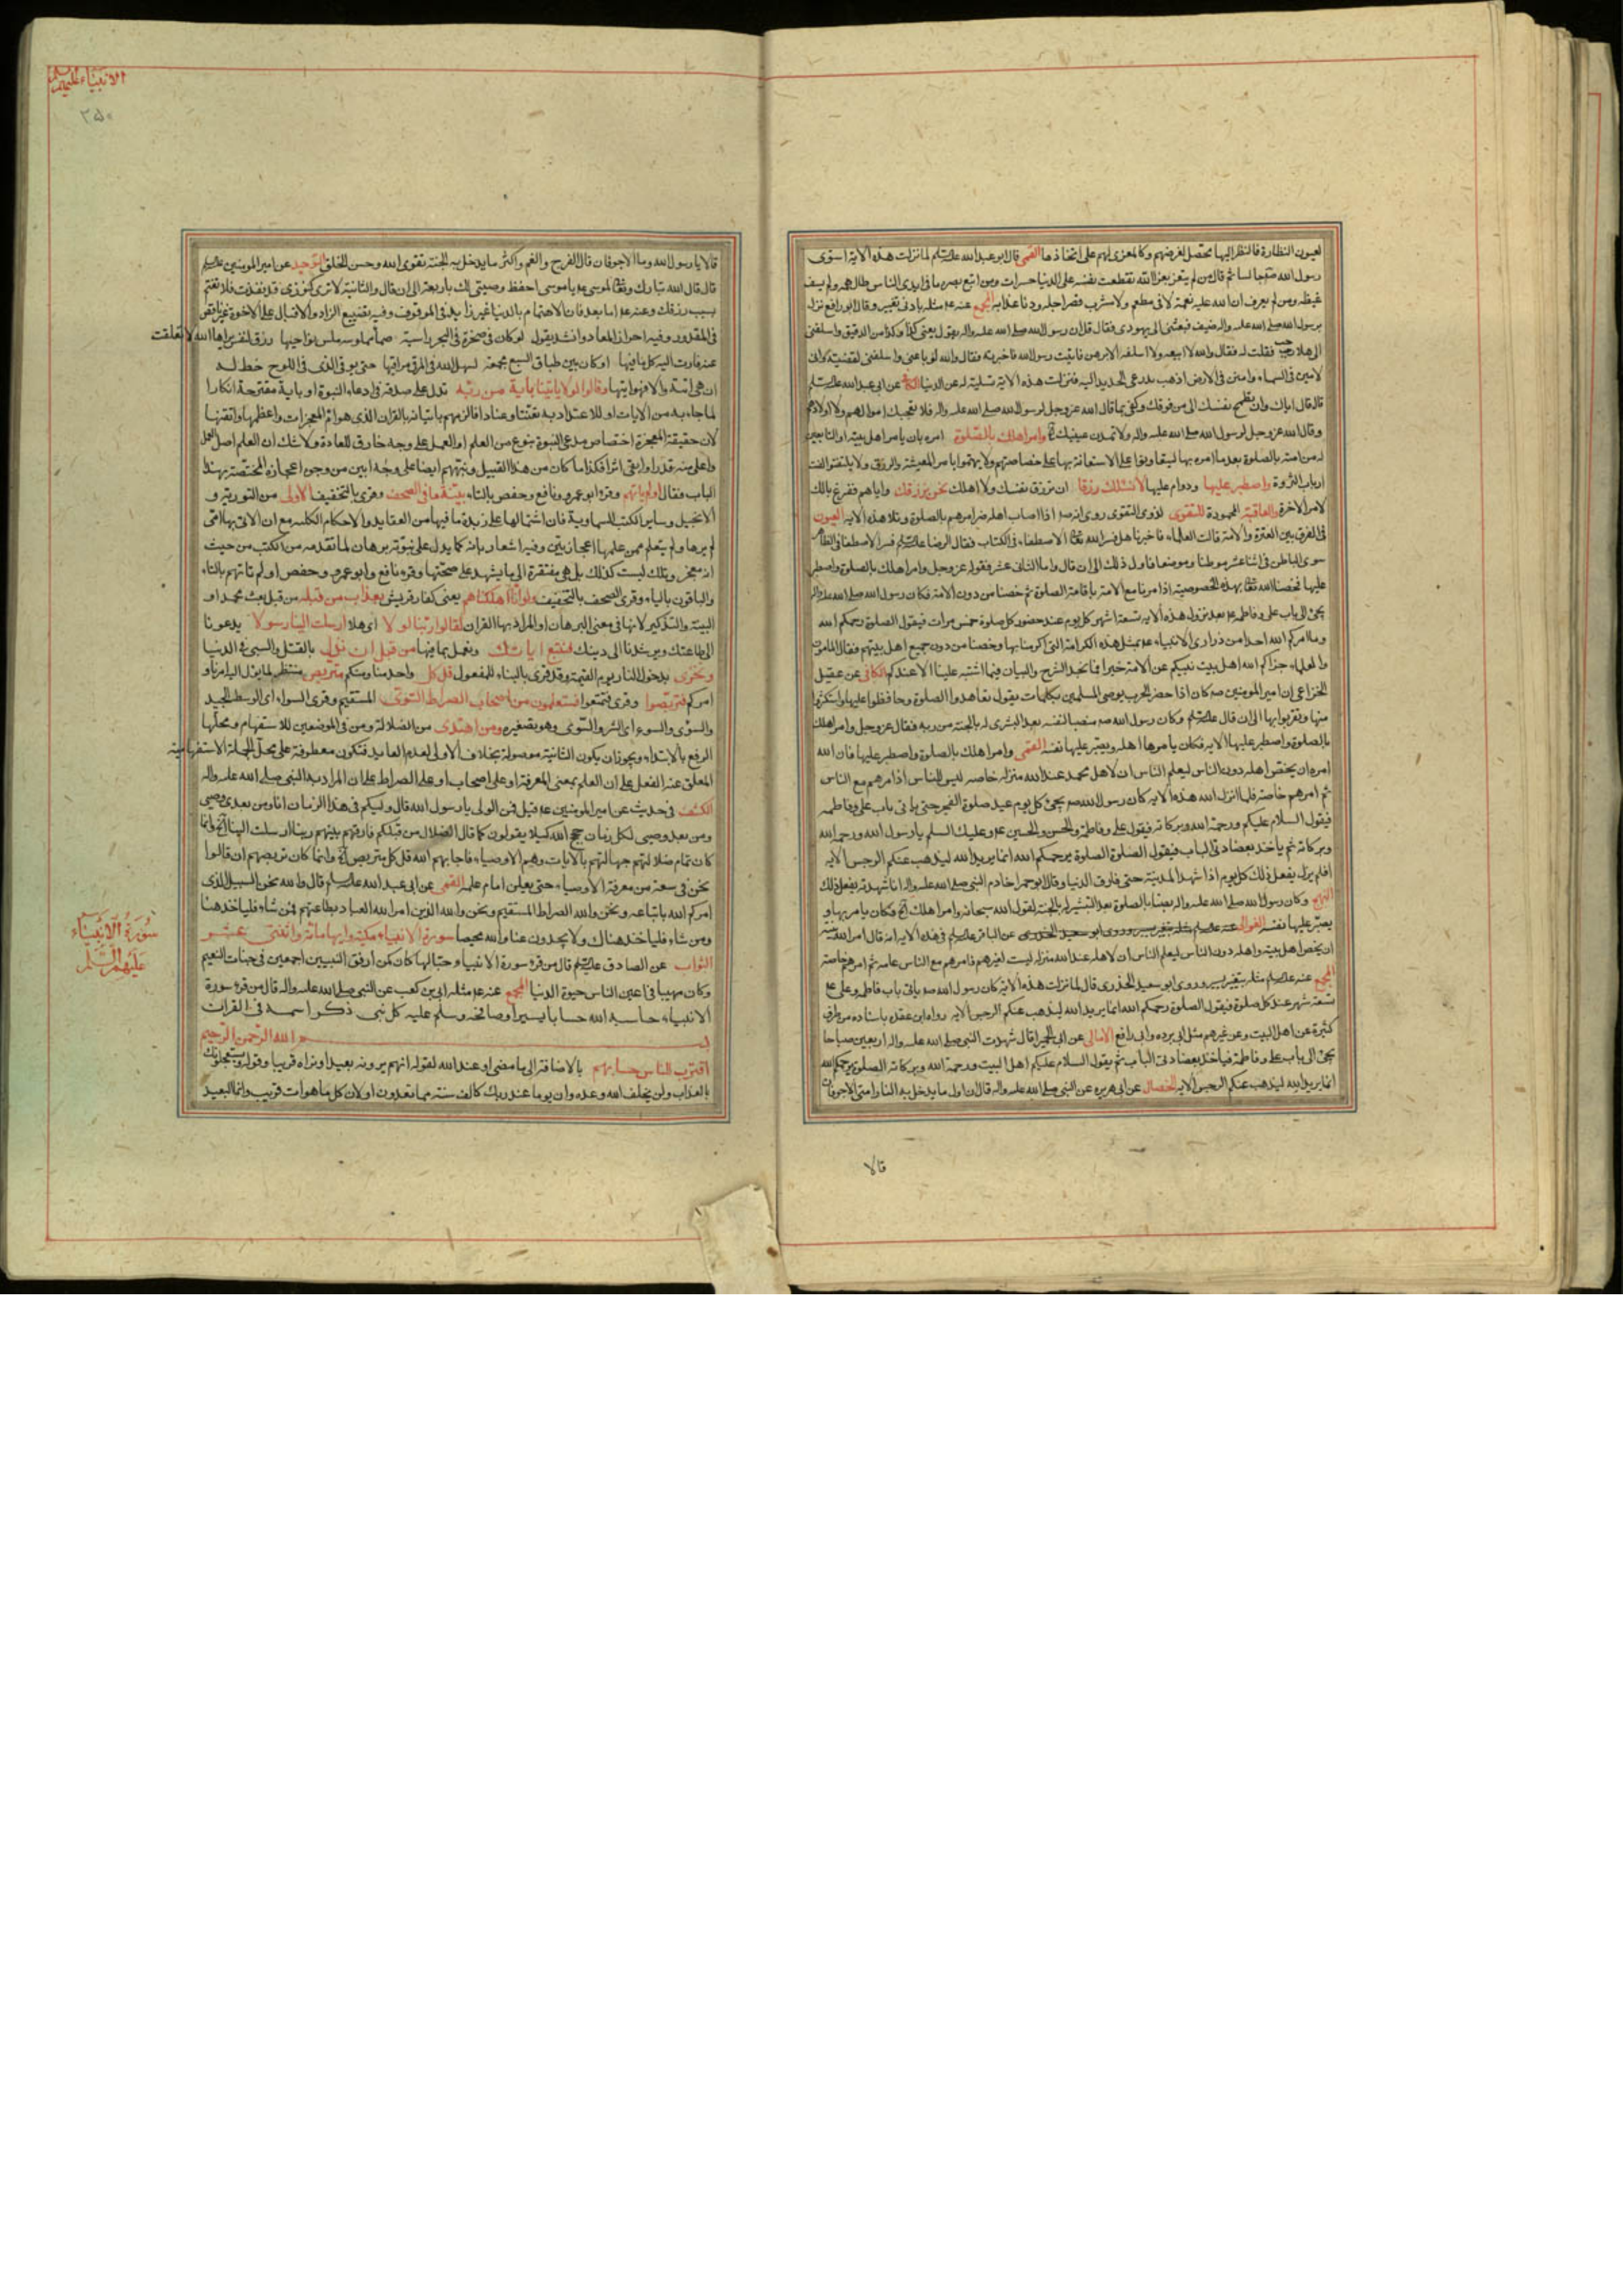 لعيون النظارة فالنظر اليها محصل لغرضهم وكالمغرى لهم على اتخاذها القمى قال ابو عبد الله علیه السلم لما نزلت هذه الآية استوى
رسول الله ص جالسا ثم قال من لم يتعز بعزاء الله تقطعت نفسه على الدنيا حسرات ومن اتبع بصره ما فى ايدى الناس طال همه ولم يشف
غيظه ومن لم يعرف ان لله عليه نعمة لا فى مطعم ولا مشرب قصر اجله ودنا عذابه المجمع عنه ع مثله بادنى تغيير وقال ابو رافع نزل
برسول الله صلى الله عليه واله ضيف فبعثنى الى يهودى فقال قل ان رسول الله صلى الله عليه واله يقول بعنى كذا وكذا من الدقيق واسلفنى
الى هلال رجب فقلت له فقال والله لا ابيعه ولا اسلفه الا برهن فاتيت رسول الله فاخبرته فقال والله لو باعنى واسلفنى لقضيته وانى
لامين فى السماء وامين فى الارض اذهب بدرعى الحديد اليه فنزلت هذه الآية تسلية له عن الدنيا الكافى عن ابى عبد الله علیه السلم
قال قال اياك وان تطمح نفسك الى من فوقك وكفى بما قال الله عز وجل لرسول الله صلى الله عليه واله فلا تعجبك اموالهم ولا اولادهم
وقال الله عز وجل لرسول الله صلى الله عليه واله ولا تمدن عينيك وامر اهلك بالصلوة امره بان يامر اهل بيته او التابعين
له من امته بالصلوة بعد ما امره بها ليتعاونوا على الاستعانة بها على خصاصتهم ولا يهتموا بامر المعيشة والرزق ولا يلتفتوا لفت
ارباب الثروة واصطبر عليها ودوام عليها لا نسئلك رزقا ان ترزق نفسك ولا اهلك نحن نرزقك واياهم ففرغ بالك
لامر الاخرة والعاقبة المحمودة للتقوى لذوى التقوى روى انه ص اذا اصاب اهله ضر امرهم بالصلوة وتلا هذه الآية العيون
فى الفرق بين العترة والامة قالت العلماء فاخبرنا هل فسر الله تعالى الاصطفاء فى الكتاب فقال الرضا علیه السلم فسر الاصطفا فى الظاهر
سوى الباطن فى اثنا عشر موطنا وموضعا فاول ذلك الى ان قال واما الثانى عشر فقوله عز وجل وامر اهلك بالصلوة واصطبر
عليها فخصنا الله تعالى بهذه الخصوصية اذ امرنا مع الامة باقامة الصلوة ثم خصنا من دون الامة فكان رسول الله صلى الله عليه واله
يجئ الى باب على وفاطمه ع بعد نزول هذه الآية تسعة اشهر كل يوم عند حضور كل صلوة خمس مرات فيقول الصلوة رحمكم الله
وما اكرم الله احدا من ذرارى الانبياء ع بمثل هذه الكرامة التى اكرمنا بها وخصنا من دون جميع اهل بيتهم فقال المامون
والعلماء جزاكم الله اهل بيت نبيكم عن الامة خيرا فما نجد الشرح والبيان فيما اشتبه علينا الا عندكم الكافى عن عقيل
الخزاعى ان امير المومنين ص كان اذا حضر الحرب يوصى المسلمين بكلمات يقول تعاهدوا الصلوة وحافظوا عليها واستكثروا
منها وتقربوا بها الى ان قال علیه السلم وكان رسول الله ص منصبا لنفسه بعد البشرى له بالجنة من ربه فقال عز وجل وامر اهلك
بالصلوة واصطبر عليها الآية فكان يامر بها اهله ويصبر عليها نفسه القمى وامر اهلك بالصلوة واصطبر عليها فان الله
امره ان يختص اهله دون الناس ليعلم الناس ان لاهل محمد عند الله منزلة خاصه ليس للناس اذ امرهم مع الناس
ثم امرهم خاصة فلما انزل الله هذه الآية كان رسول الله ص يجئ كل يوم عند صلوة الفجر حتى ياتى باب على وفاطمه
فيقول السلام عليكم ورحمة الله وبركاته فيقول على وفاطمة والحسن والحسين ع وعليك السلم يا رسول الله ورحمة الله
وبركاته ثم ياخذ بعضادتى الباب فيقول الصلوة الصلوة يرحمكم الله انما يريد الله ليذهب عنكم الرجس الآية
فلم يزل يفعل ذلك كل يوم اذا شهد المدينة حتى فارق الدنيا وقال ابو حمرا خادم النبى صلى الله عليه واله انا شهدته يفعل ذلك
النهج وكان رسول الله صلى الله عليه واله نصبا بالصلوة بعد التبشير له بالجنة لقول الله سبحانه وامر اهلك الخ وكان يامر بها و
يصبر عليها نفسه العوالى عن الباقر علیه السلم فى هذه الآية انه قال امر الله نبيه
ان يخص اهل بيته واهله دون الناس ليعلم الناس ان لاهله عند الله منزلة ليست لغيرهم فامرهم مع الناس عامه ثم امرهم خاصة
المجمع عنه علیه السلم مثله بتغير يسير وروى ابو سعيد الخدرى قال لما نزلت هذه الآية كان رسول الله ص ياتى باب فاطمه وعلى ع
تسعة شهر عند كل صلوة فيقول الصلوة رحمكم الله انما يريد الله ليذهب عنكم الرجس الآية رواه ابن عقده باسناده من طرق
كثيرة عن اهل البيت وعن غيرهم مثل ابى برده وابى رافع الامالى عن ابى الحمرا قال شهدت النبى صلى الله عليه واله اربعين صباحا
يجئ الى باب على وفاطمة فياخذ بعضادتى الباب ثم يقول السلام عليكم اهل البيت ورحمة الله وبركاته الصلوة يرحمكم الله
انما يريد الله ليذهب عنكم الرجس الآية الخصال عن ابى هريره عن النبى صلى الله عليه واله قال ان اول ما يدخل به النار امتى الاجوفان
قالا
الانبياء عليهم السلم
٢٥٠
قالا يا رسول الله وما الاجوفان قال الفرج والفم واكثر ما يدخل به الجنة تقوى الله وحسن الخلق التوحيد عن امير المومنين علیه السلم
قال قال الله تبارك وتعالى لموسى ع يا موسى احفظ وصيتى لك باربعة الى ان قال والثانية لا ترى كنوزى قد نفدت فلا تغتم
بسبب رزقك وعنه ع اما بعد فان الاهتمام بالدنيا غير زايد فى الموقوف وفيه تضييع الزاد والاقبال على الاخرة غير ناقص
فى المقدور وفيه احراز المعاد وانشد يقول لو كان فى صخرة فى البحر راسية صماء ملمومة ملس نواحيها رزق لنفس براها الله لانفلقت
عنه فادت اليه كل ما فيها او كان بين طباق السبع مجمعة لسهل الله فى المرقى مراقيها حتى يوفى الذى فى اللوح خط له
ان هى اتته والا فهو اتيها وقالوا لولا ياتينا بآية من ربه تدل على صدقه فى ادعاء النبوة او باية مقترحة انكارا
لما جاء به من الايات او للاعتداد به تعنتا وعنادا فالزمهم باتيانه بالقران الذى هو ام المعجزات واعظمها واتقنها
لان حقيقة المعجزة اختصاص مدعى النبوة بنوع من العلم او العمل على وجه خارق للعادة ولا شك ان العلم اصل العمل
واعلى منه قدرا وابقى اثرا فكذا ما كان من هذا القبيل ونبههم ايضا على وجه ابين من وجوه اعجازه المختصة بهذا
الباب فقال اولم ياتهم وقرء ابو عمرو ونافع وحفص بالتاء بينة ما فى الصحف وقرئ بالتخفيف الاولى من التورية و
الانجيل وساير الكتب السماوية فان اشتمالها على زبدة ما فيها من العقايد والاحكام الكلية مع ان الاتى بها امى
لم يرها ولم يتعلم ممن علمها اعجاز بين وفيه اشعار بانه كما يدل على نبوته برهان لما تقدمه من الكتب من حيث
انه معجز وتلك ليست كذلك بل هى مفتقرة الى ما يشهد على صحتها وقرء نافع وابو عمرو وحفص اولم تاتهم بالتاء
والباقون بالياء وقرئ الصحف بالتخفيف ولو انا اهلكناهم يعنى كفار قريش بعذاب من قبله من قبل بعث محمد او
البينة والتذكير لانها فى معنى البرهان او المراد بها القران لقالوا ربنا لولا اى هلا ارسلت الينا رسولا يدعونا
الى طاعتك ويرشدنا الى دينك فنتبع اياتك ونعمل بما فيها من قبل ان نذل بالقتل والسبى فى الدنيا
ونخزى بدخول النار يوم القيمة وقد قرئ بالبناء للمفعول قل كل واحد منا ومنكم متربص منتظر لما يؤل اليه امرنا و
امركم فتربصوا وقرئ فتمتعوا فستعلمون من اصحاب الصراط السوى المستقيم وقرئ السواء اى الوسط الجيد
والسوئى والسوء اى الشر والسوى وهو تصغيره ومن اهتدى من الضلالة ومن فى الموضعين للاستفهام ومحلها
الرفع بالابتداء ويجوز ان يكون الثانية موصولة بخلاف الاولى لعدم العايد فتكون معطوفة على محل الجملة الاستفهامية
المعلق عنه الفعل على ان العلم بمعنى المعرفة او على اصحاب او على الصراط على ان المراد به النبى صلى الله عليه واله
الكشف فى حديث عن امير المومنين ع قيل فمن الولى يا رسول الله قال وليكم فى هذا الزمان انا ومن بعدى وصيى
ومن بعد وصيى لكل زمان حجج الله كيلا يقولون كما قال الضلال من قبلكم فارقهم نبيهم ربنا لولا ارسلت الينا الخ وانما
كان تمام ضلالتهم جهالتهم بالايات وهم الاوصياء فاجابهم الله قل كل متربص الخ وانما كان تربصهم ان قالوا
نحن فى سعة من معرفة الاوصياء حتى يعلن امام علمه القمى عن ابى عبد الله علیه السلم قال والله نحن السبيل الذى
امركم الله باتباعه ونحن والله الصراط المستقيم ونحن والله الذين امر الله العباد بطاعتهم فمن شاء فلياخذ هنا
ومن شاء فلياخذ هناك ولا يجدون عنا والله محيصا سورة الانبياء مكية وايها مائة واثنتى عشر
الثواب عن الصادق علیه السلم قال من قرء سورة الانبياء حبا لها كان كمن ارفق النبيين اجمعين فى جنات النعيم
وكان مهيبا فى اعين الناس حيوة الدنيا المجمع عنه ع مثله ابى بن كعب عن النبى صلى الله عليه واله قال من قرء سورة
الانبياء حاسبه الله حسابا يسيرا وصافحه وسلم عليه كل نبى ذكر اسمه فى القران
بسم الله الرحمن الرحيم
اقترب للناس حسابهم بالاضافة الى ما مضى او عند الله لقوله انهم يرونه بعيدا ونراه قريبا وقوله ويستعجلونك
بالعذاب ولن يخلف الله وعده وان يوما عند ربك كالف سنة مما تعدون او لان كل ما هو ات قريب وانما البعيد
سورة الانبياء
عليهم السلم